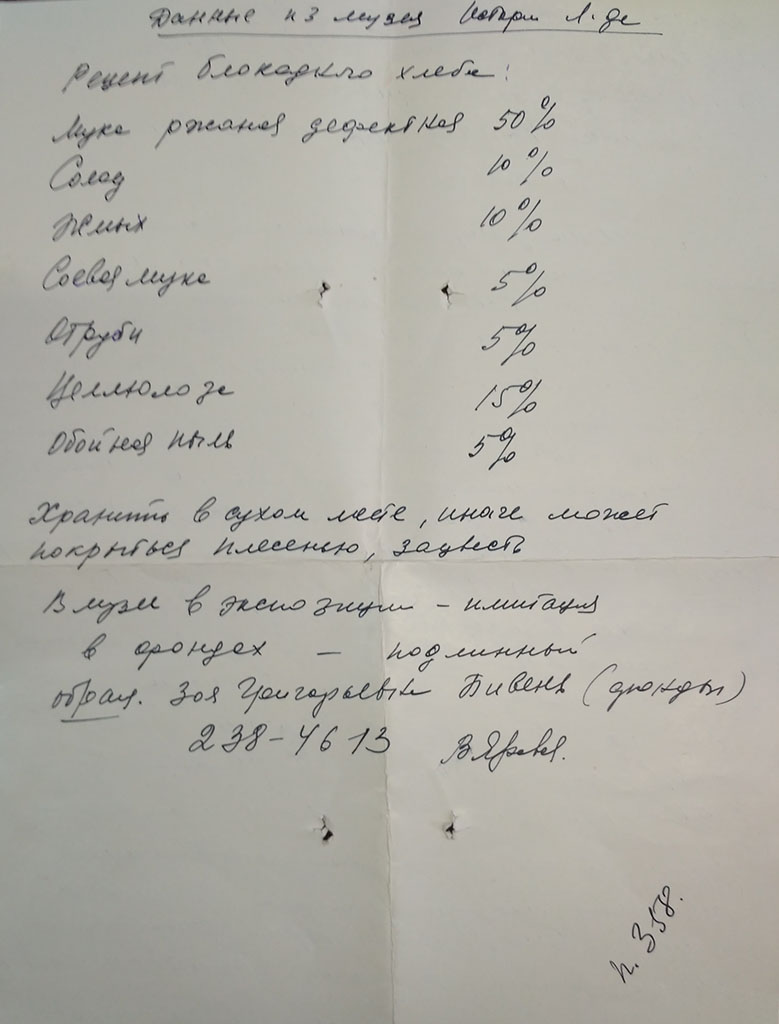 Данные из музея Истории Л-да
Рецепт блокадного хлеба:
Мука ржаная дефектная 50%
Солод 10%
Жмых 10%
Соевая мука 5%
Отруби 5%
Целлюлоза 15%
Обойная пыль 5%
Хранить в сухом месте, иначе может
покрыться плесенью, зацвесть
В музее в экспозиции - имитация
в фондах - подлинный
образ. Зоя Григорьевна Бивень (фонды)
238-46 13 В Яровая.
п. 358.